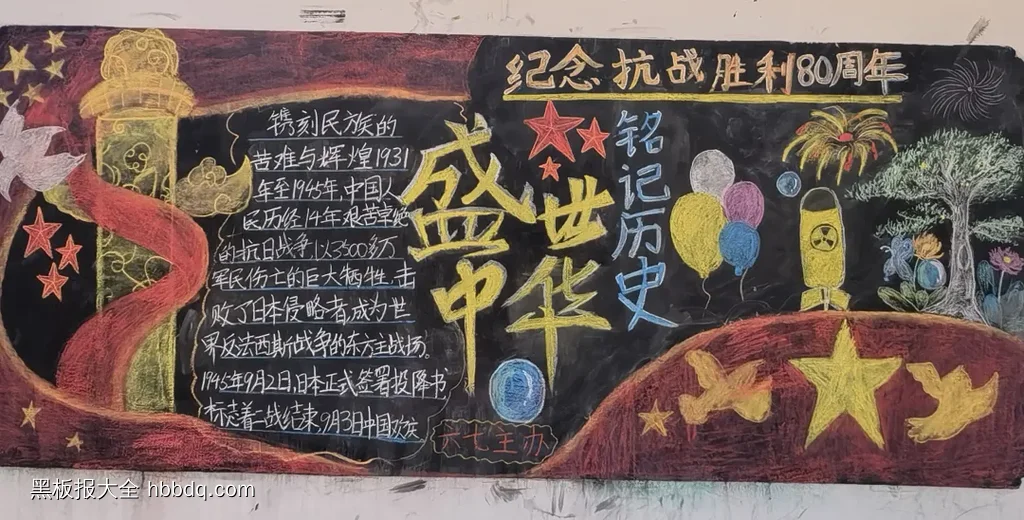 纪念抗战胜利80周年
镌刻民族的
苦难与辉煌1931
年至1945年中国人
民历经14年艰苦卓绝
的抗日战争,以3500多万
军民伤亡的巨大牺牲,击
败了日本侵略者成为世
界反法西斯战争的东方主战场。
1945年9月2日,日本正式签署投降书
标志着二战结束,9月3日中国
盛世
中华
铭记历史
六七主办
黑板报大全 hbbdq.com